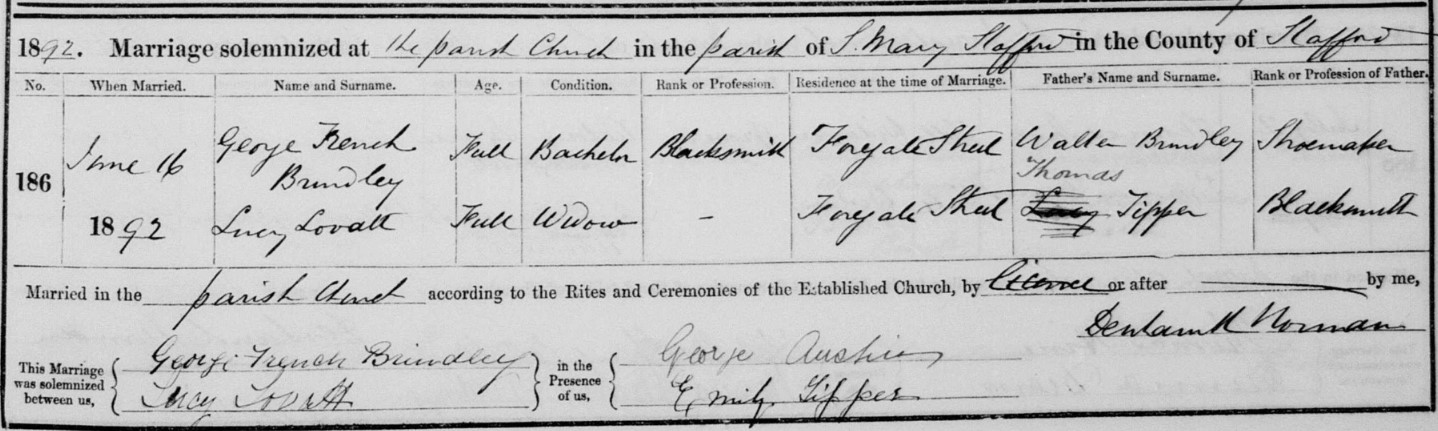 1892. Marriage solemnized at the parish Church in the parish of S. Mary Stafford in the County of Stafford
No. When Married. Name and Surname. Age. Condition. Rank or Profession. Residence at the time of Marriage. Father's Name and Surname. Rank or Profession of Father.
186 June 16 1892 George French Brindley Full Bachelor Blacksmith Foregate Street Walter Brindley Shoemaker
Lucy Lovatt Full Widow - Foregate Street Thomas Lucy Tipper Blacksmith
Married in the parish Church according to the Rites and Ceremonies of the Established Church, by Licence or after by me,
Norman
This Marriage was solemnized between us, George French Brindley in the Presence of us, George Austin
Lucy Lovatt Emily Tipper